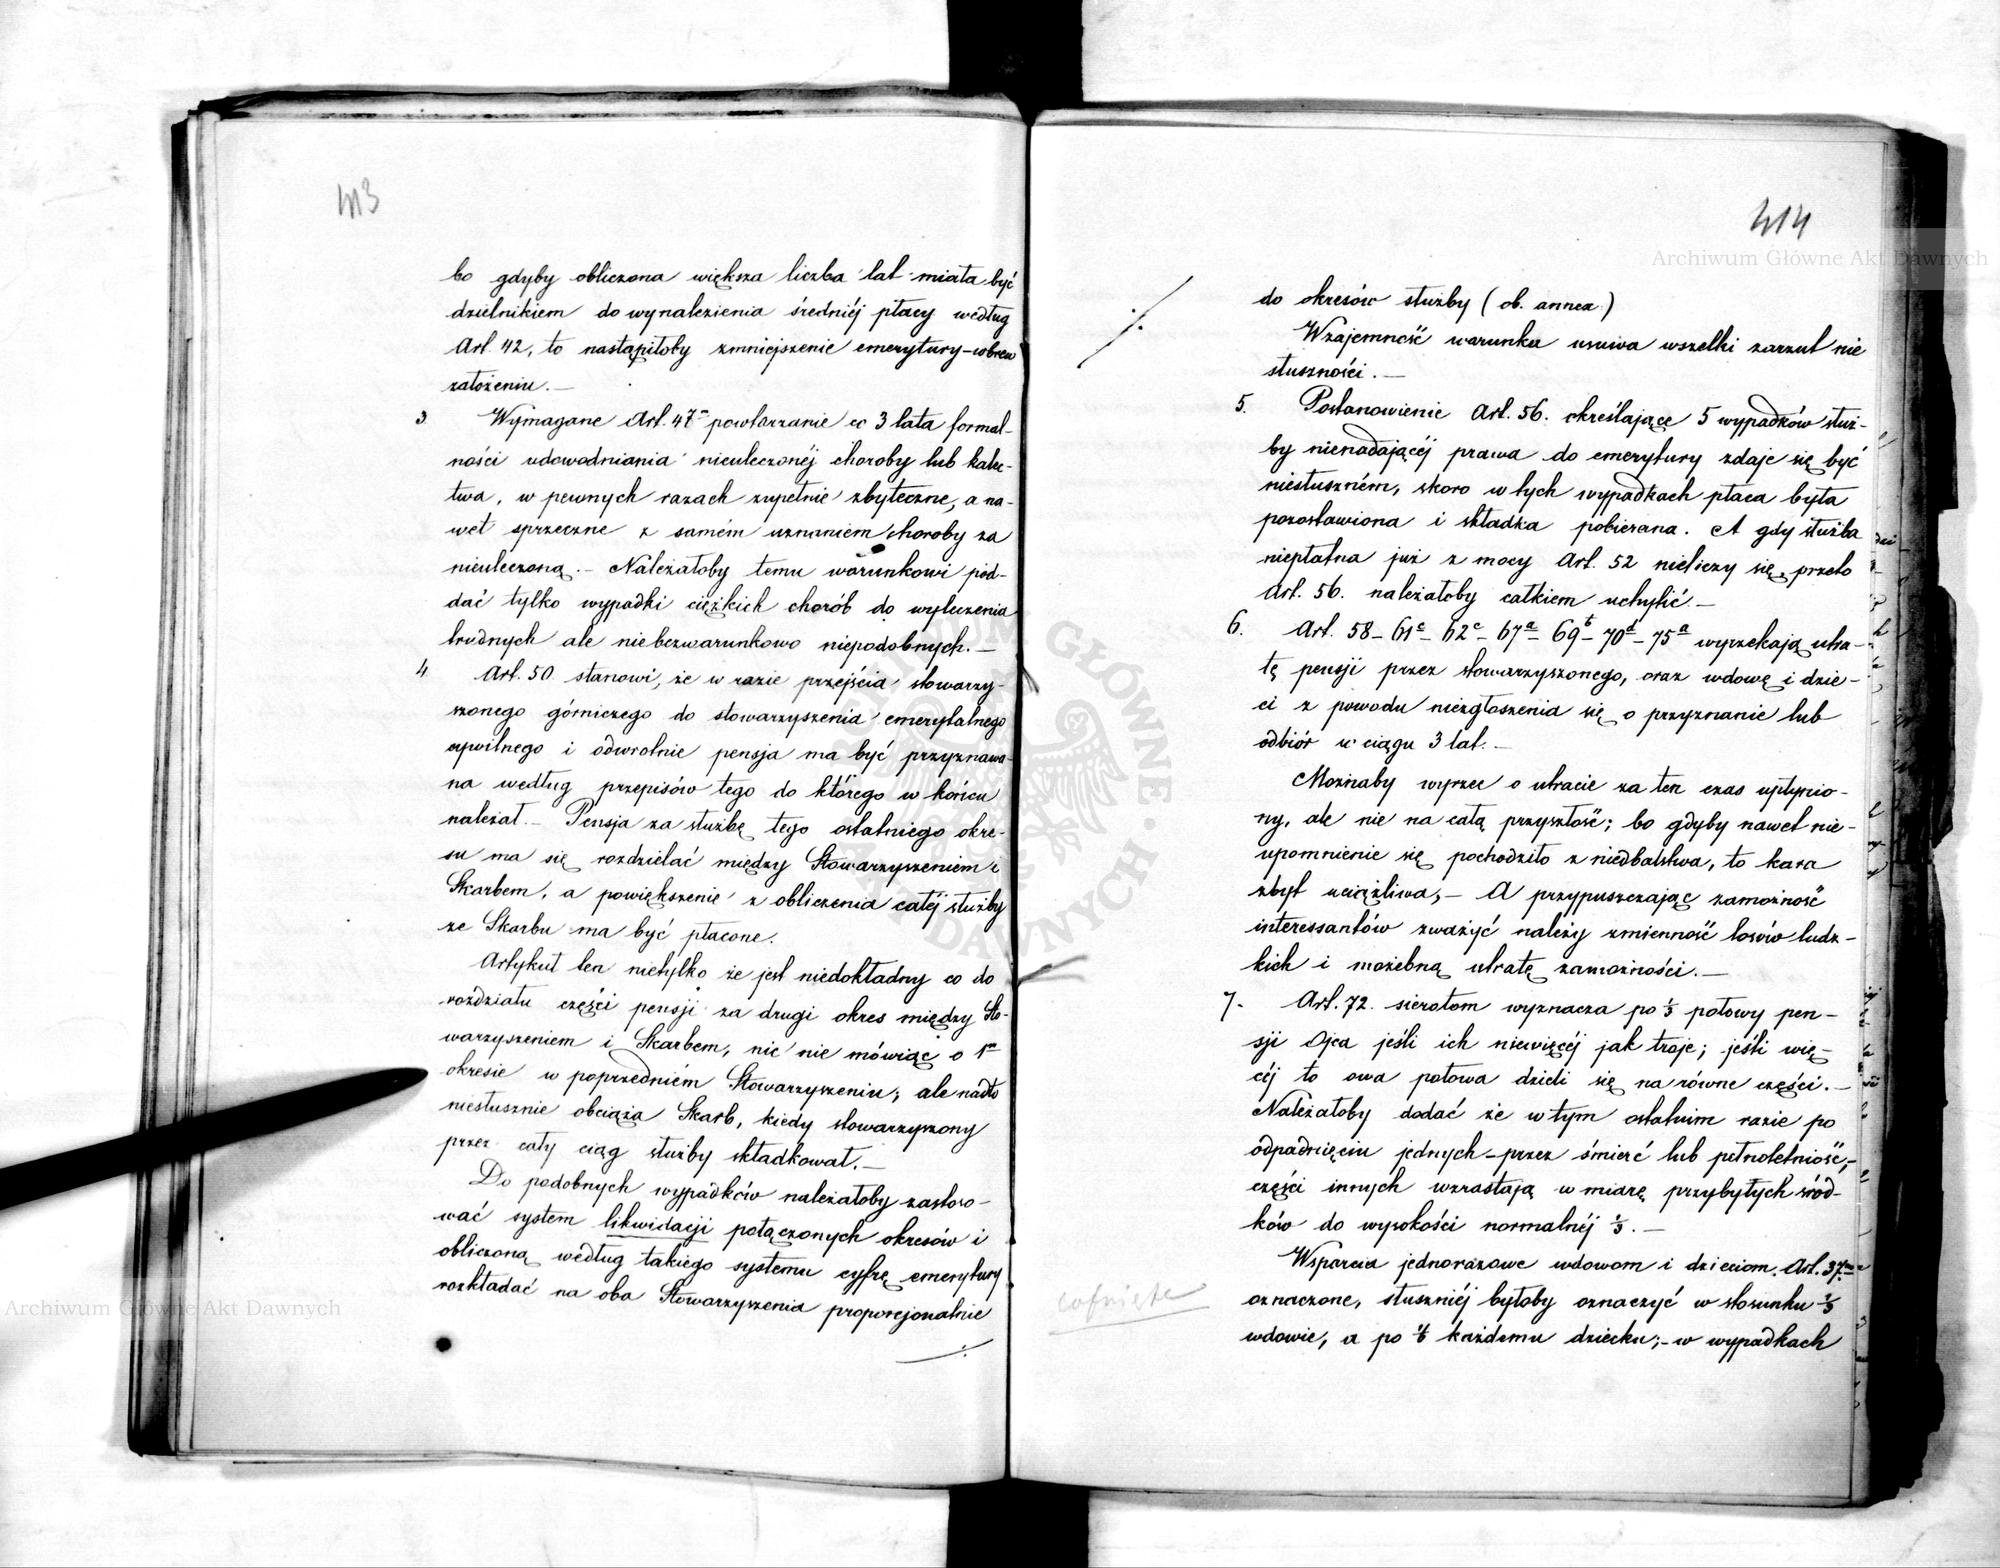 413
bo gdyby obliczona większa liczba lat miała być
dzielnikiem do wynalezienia średniéj płacy według
Art. 42, to nastąpiłoby zmniejszenie emerytury – wbrew
założeniu. —
3 Wymagane Art. 47 powtarzanie co 3 lata formal-
ności udowodniania nieuleczonéj choroby lub kalec-
twa, w pewnych razach zupełnie zbyteczne, a na-
wet sprzeczne z samém uznaniem choroby za
nieuleczoną. — Należałoby temu warunkowi pod-
dać tylko wypadki ciężkich chorób do wyleczenia
trudnych ale niebezwarunkowo niepodobnych. —
4 Art. 50 stanowi, że w razie przejścia stowarzy-
szonego górniczego do stowarzyszenia emerytalnego
cywilnego i odwrotnie pensja ma być przyznawa-
na według przepisów tego do którego w końcu
należał. — Pensja za służbę tego ostatniego okre-
su ma się rozdzielać między Stowarzyszeniem i
Skarbem, a powiększenie z obliczenia całéj służby
ze Skarbu ma być płacone.
Artykuł ten nietylko że jest niedokładny co do
rozdziału części pensji za drugi okres między Sto-
warzyszeniem i Skarbem, nic nie mówiąc o 1m
okresie w poprzedniém Stowarzyszeniu; ale nadto
niesłusznie obciąża Skarb, kiedy stowarzyszony
przez cały ciąg służby składkował. —
Do podobnych wypadków należałoby zastoso-
wać system likwidacji połączonych okresów i
obliczoną według takiego systemu cyfrę emerytury
rozkładać na oba Stowarzyszenia proporcjonalnie
414
do okresów służby (ob. annex.)
Wzajemność warunku usuwa wszelki zarzut nie
słuszności. —
5. Postanowienie Art. 56. określające 5 wypadków służ-
by nienadającéj prawa do emerytury zdaje się być
niesłuszném, skoro w tych wypadkach płaca była
pozostawiona i składka pobierana. A gdy służba
niepłatna już z mocy Art. 52 nieliczy się, przeto
Art. 56. należałoby całkiem uchylić. —
6. Art. 58 – 61c – 62c – 67a – 69b – 70d – 75a wyrzekają utra-
tę pensji przez stowarzyszonego, oraz wdowę i dzie-
ci z powodu niezgłoszenia się o przyznanie lub
odbiór w ciągu 3 lat. —
Możnaby wyrzec o utracie za ten czas upłynio-
ny, ale nie na całą przyszłość; bo gdyby nawet nie-
upomnienie się pochodziło z niedbalstwa, to kara
zbyt uciążliwa; — A przypuszczając zamożność
interessantów zważyć należy zmienność losów ludz-
kich i możebną utratę zamożności. —
7. Art. 72. sierotom wyznacza po 1/3 połowy pen-
sji Ojca jeśli ich niewięcéj jak troje; jeśli wię-
céj to owa połowa dzieli się na równe części. —
Należałoby dodać że w tym ostatnim razie po
odpadnięciu jednych – przez śmierć lub pełnoletniość, –
części innych wzrastają w miarę przybyłych środ-
ków do wysokości normalnéj 1/3. —
Wsparcia jednorazowe wdowom i dzieciom Art. 37
oznaczone, słuszniéj byłoby oznaczyć w stosunku
cofnięte
wdowie, a po 1/6 każdemu dziecku; – w wypadkach
Archiwum Główne Akt Dawnych
Archiwum Główne Akt Dawnych